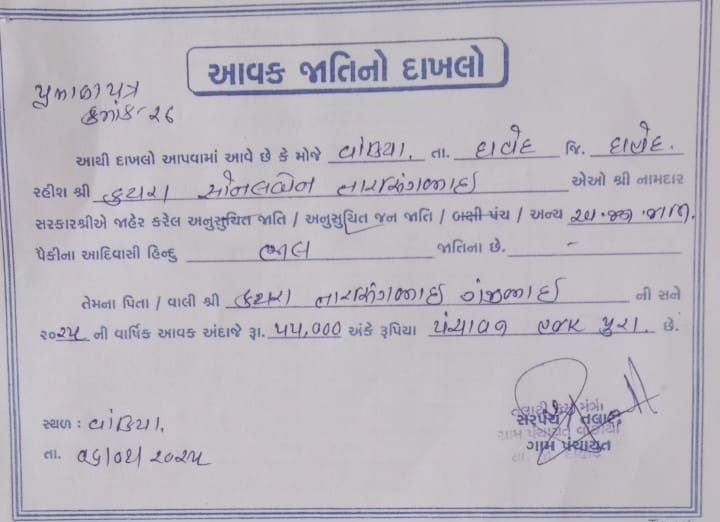 આવક જાતિનો દાખલો
પ્રમાણપત્ર
ક્રમાંક- ૨૬
આથી દાખલો આપવામાં આવે છે કે મોજે વાંકિયા. તા. દાહોદ જિ. દાહોદ.
રહીશ શ્રી કટારા સોનલબેન નારસિંગભાઈ એઓ શ્રી નામદાર
સરકારશ્રીએ જાહેર કરેલ અનુસુચિત જાતિ / અનુસુચિત જન જાતિ / બક્ષી પંચ / અન્ય અ.જ.જાતિ.
પૈકીના આદિવાસી હિન્દુ ભીલ જાતિના છે. -
તેમના પિતા / વાલી શ્રી કટારા નારસિંગભાઈ ગંજીભાઈ ની સને
૨૦૨૫ ની વાર્ષિક આવક અંદાજે રૂા. ૫૫,૦૦૦ અંકે રૂપિયા પંચાવન હજાર પુરા. છે.
તલાટી કમ મંત્રી
સરપંચ / તલાટી
ગ્રામ પંચાયત
ગામ પંચાયત
સ્થળ : વાંકિયા.
તા. ૨૦૨૫